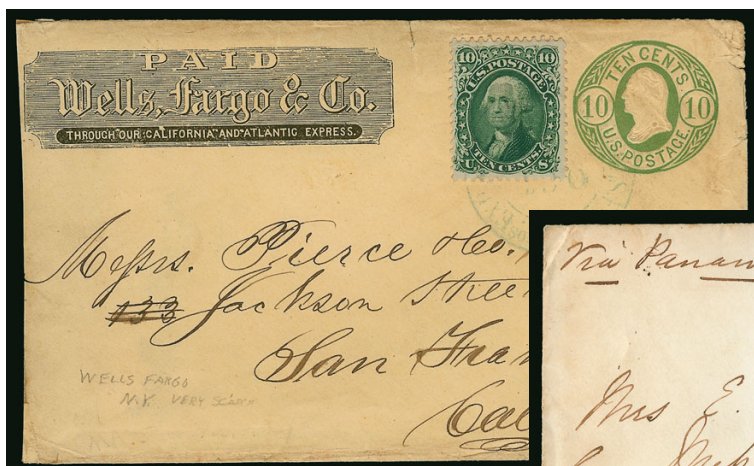 PAID
Wells, Fargo & Co.
THROUGH OUR CALIFORNIA AND ATLANTIC EXPRESS.
10 10
U.S. POSTAGE
TEN CENTS
U S
TEN CENTS
10 10
U.S. POSTAGE.
Messrs. Pierce & Co.
133 Jackson Stree
San Fran
Cal
WELLS FARGO
N.Y. VERY SCARCE
Via Panam
Mrs E.